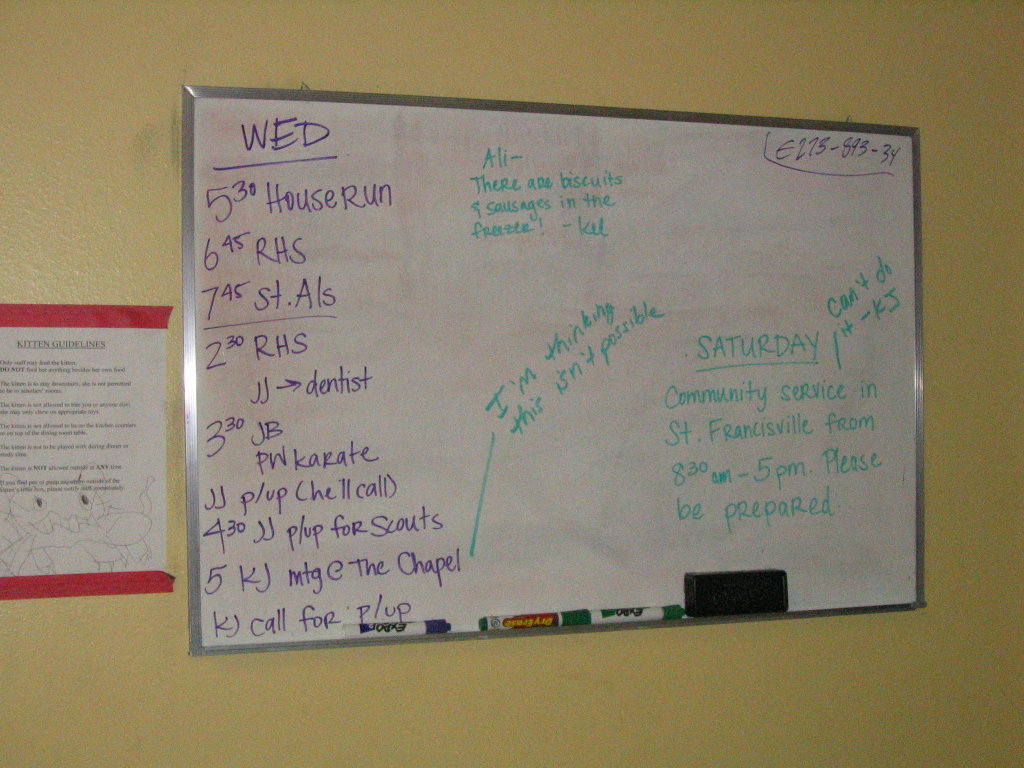 WED
5³⁰ House Run
6⁴⁵ RHS
7⁴⁵ St. Als
2³⁰ RHS
JJ → dentist
3³⁰ JB
PW karate
JJ p/up (he'll call)
4³⁰ JJ p/up for Scouts
5 KJ mtg @ The Chapel
KJ call for p/up
Ali-
There are biscuits
& sausages in the
freezer! - Kel
I'm thinking
this isn't possible
E273-893-34
can't do
it - KJ
SATURDAY
Community service in
St. Francisville from
8³⁰ am - 5pm. Please
be prepared.
EXPO
Dry Erase
EXPO
KITTEN GUIDELINES
Only staff may feed the kitten.
DO NOT feed her anything besides her own food
The kitten is to stay downstairs; she is not permitted
to be in scholars' rooms.
The kitten is not allowed to bite you or anyone else;
she may only chew on appropriate toys.
The kitten is not allowed to be on the kitchen counters
or on top of the dining room table.
The kitten is not to be played with during dinner or
study time.
The kitten is NOT allowed outside at ANY time.
If you find pee or poop anywhere outside of the
kitten's litter box, please notify staff immediately.